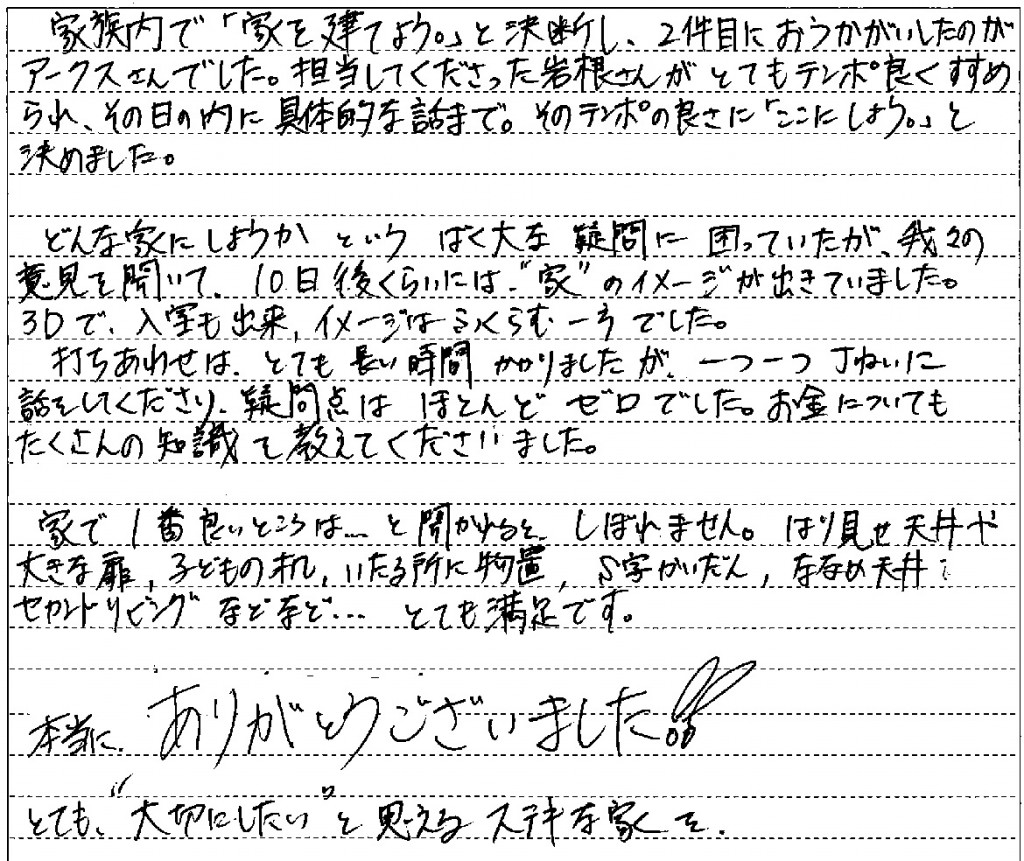 家族内で「家を建てよう。」と決断し、2件目におうかがいしたのが
アークスさんでした。担当してくださった岩根さんがとてもテンポ良くすすめ
られ、その日の内に具体的な話まで。そのテンポの良さに「ここにしよう。」と
決めました。
どんな家にしようかという ばく大な 疑問に 困っていたが、我々の
意見を聞いて、10日後くらいには、"家"のイメージが出きていました。
3Dで、入室も出来、イメージはふくらむ一方でした。
打ちあわせは、とても長い時間かかりましたが、一つ一つ丁ねいに
話をしてくださり、疑問点は ほとんど ゼロでした。お金についても
たくさんの知識を教えてくださいました。
家で1番良いところは…と聞かれると、しぼれません。はり見せ天井や
大きな扉、子どもの机、いたる所に物置、S字かいだん、ななめ天井、
セカンドリビングなどなど… とても満足です。
本当に、ありがとうございました!!
とても、"大切にしたい"と思えるステキな家を。